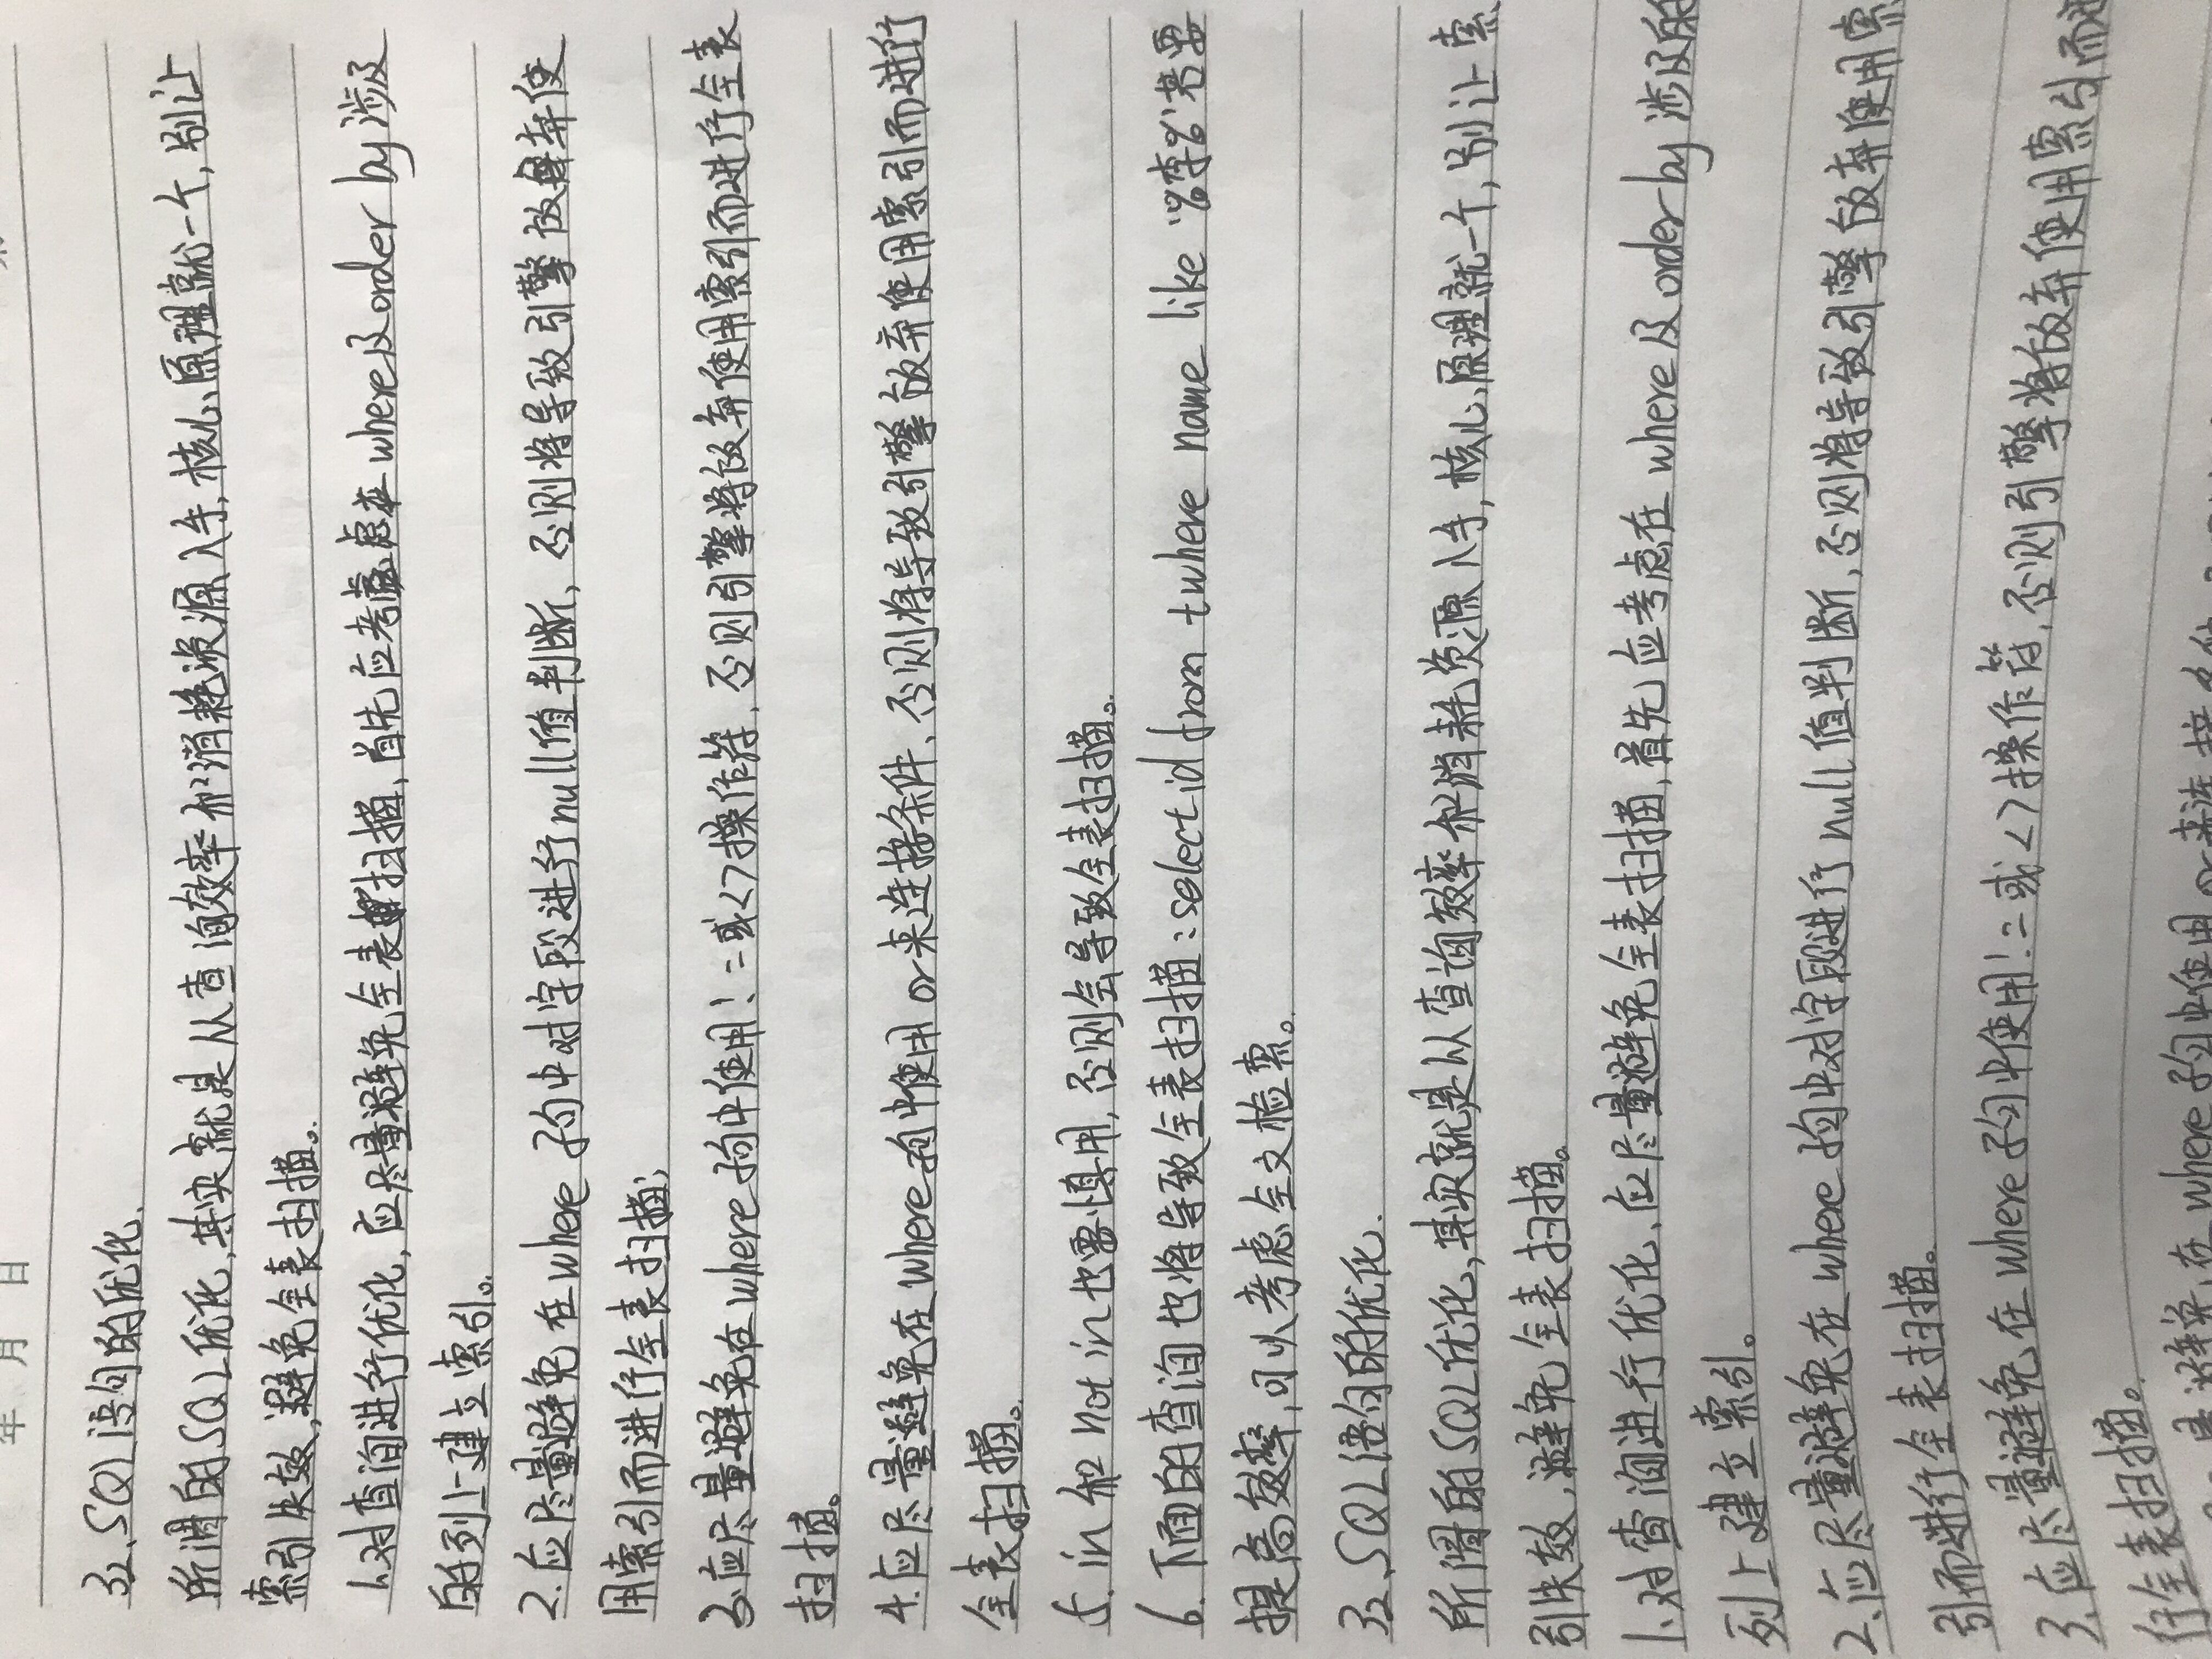 年 月 日
32、SQL语句的优化.
所谓的SQL优化,其实就是从查询效率和消耗资源入手,核心原理就一个,别让
索引失效,避免全表扫描。
1.对查询进行优化,应尽量避免全表扫描,首先应考虑在where及order by涉及
的列上建立索引。
2.应尽量避免在where子句中对字段进行null值判断,否则将导致引擎放弃使
用索引而进行全表扫描;
3.应尽量避免在where子句中使用!=或<>操作符,否则引擎将放弃使用索引而进行全表
扫描。
4.应尽量避免在where子句中使用or来连接条件、否则将导致引擎放弃使用索引而进行
全表扫描。
5. in和not in也要慎用,否则会导致全表扫描。
6. 下面的查询也将导致全表扫描:select id from t where name like '%李%'若要
提高效率,可以考虑全文检索。
32、SQL语句的优化.
所谓的SQL优化,其实就是从查询效率和消耗资源入手,核心原理就一个,别让索
引失效,避免全表扫描。
1、对查询进行优化、应尽量避免全表扫描,首先应考虑在where及order by涉及的
列上建立索引。
2、应尽量避免在where子句中对字段进行null值判断,否则将导致引擎放弃使用索
引而进行全表扫描。
3、应尽量避免在where子句中使用!=或<>操作符,否则引擎将放弃使用索引而进
行全表扫描。
量避免在where子句中使用or来连接条件